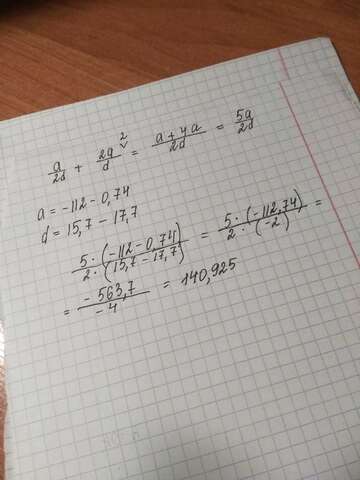 a/2d + 2a/d ² = a + 4a/2d = 5a/2d
a = -112 - 0,74
d = 15,7 - 17,7
5·(-112 - 0,74)/2·(15,7 - 17,7) = 5·(-112,74)/2·(-2) =
= -563,7/-4 = 140,925